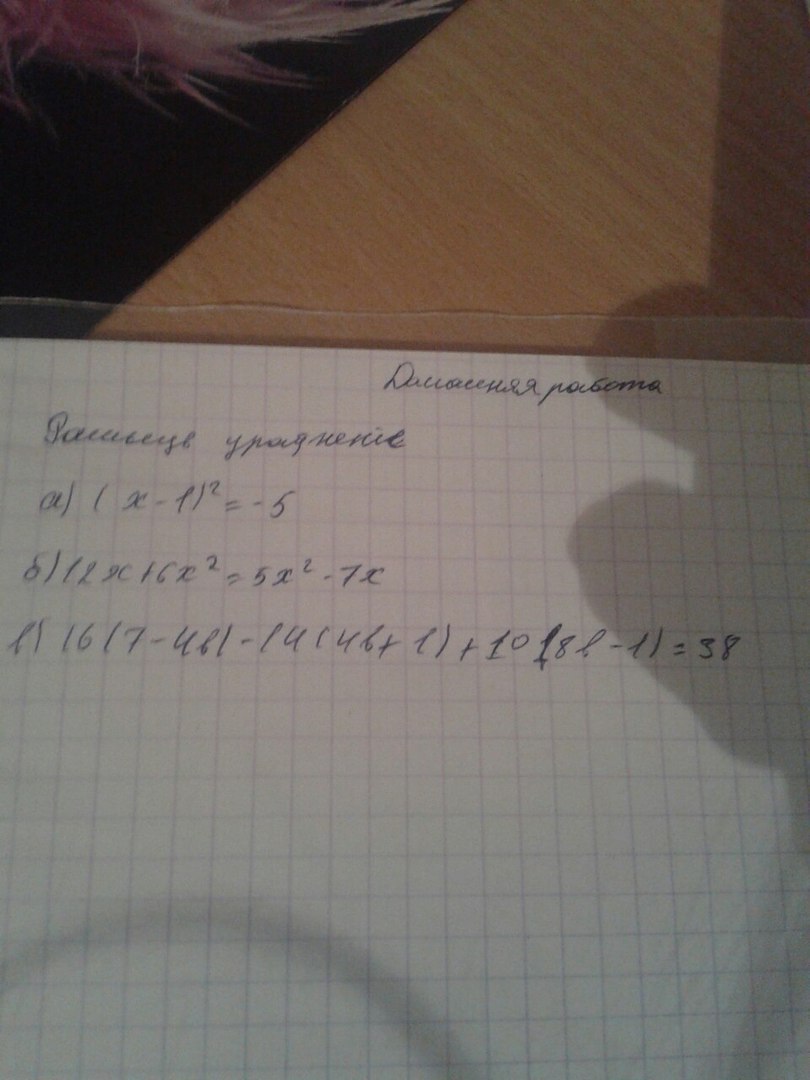 Домашняя работа
Рашыце ураўненіе
а) (x - 1)² = -5
б) 12x + 6x² = 5x² - 7x
в) 16(7 - 4в) - 14(4в + 1) + 10(8в - 1) = 38